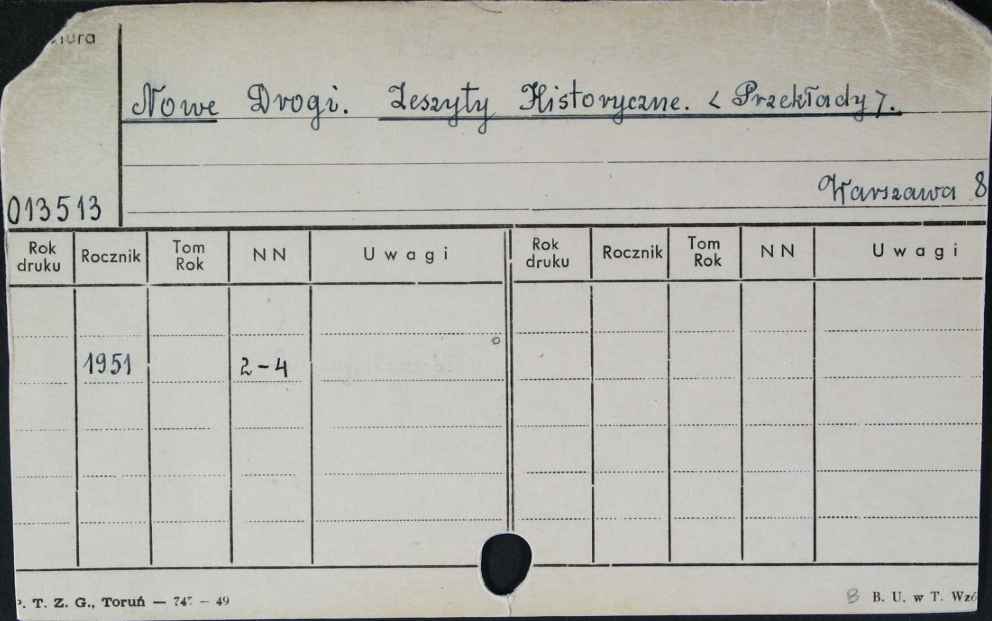 Nowe Drogi. Zeszyty Historyczne. < Przekłady >.
Warszawa 8
013513
Rok druku Rocznik Tom Rok NN Uwagi Rok druku Rocznik Tom Rok NN Uwagi
1951 2-4
T. Z. G., Toruń — 74 — 49
8 B. U. w T.